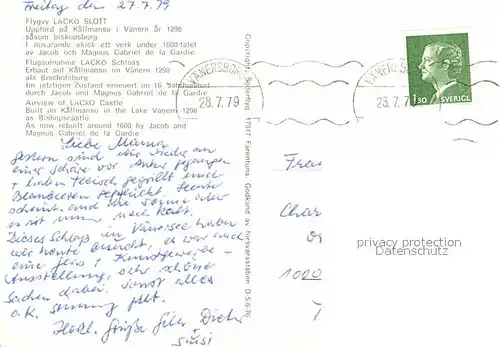 Freitag den 27.7.79
Flygvy LACKO SLOTT
Uppförd på Kållmansö i Vänern år 1298
såsom biskopsborg.
I nuvarande skick ett verk under 1600-talet
av Jacob och Magnus Gabriel de la Gardie.
Flugaufnahme LACKO Schloss
Erbaut auf Kållmansö im Vänern 1298
als Bischofsburg
Im jetztigen Zustand erneuert im 16. Jahrhundert
durch Jacob und Magnus Gabriel de la Gardie.
Airview of LACKO Castle
Built on Kållmansö in the Lake Vänern 1298
as Bishopscastle
As now rebuilt around 1600 by Jacob and
Magnus Gabriel de la Gardie
Liebe Mama
gestern sind wir wieder an
einer Schäre vor Anker gegangen
+ haben Fleisch gegrillt und
Blaubeeren gepflückt. Heute
scheint auch die Sonne aber
es ist immer noch kalt.
Dieses Schloß im Vänersee haben
wir heute besucht, es war auch
eine Kunstgewerbe-
Ausstellung, sehr schöne
Sachen dabei. Sonst alles
o.k.
Herzl. Grüße Dieter
Susi
Copyright: Söderflyg 17017 Färentuna Godkänd av försvarsstaben D-5-6/76
VÄNERSBORG
28.7.79
VÄNERSBORG
28.7.79
130 SVERIGE
Frau
Char
1000
privacy protection
Datenschutz